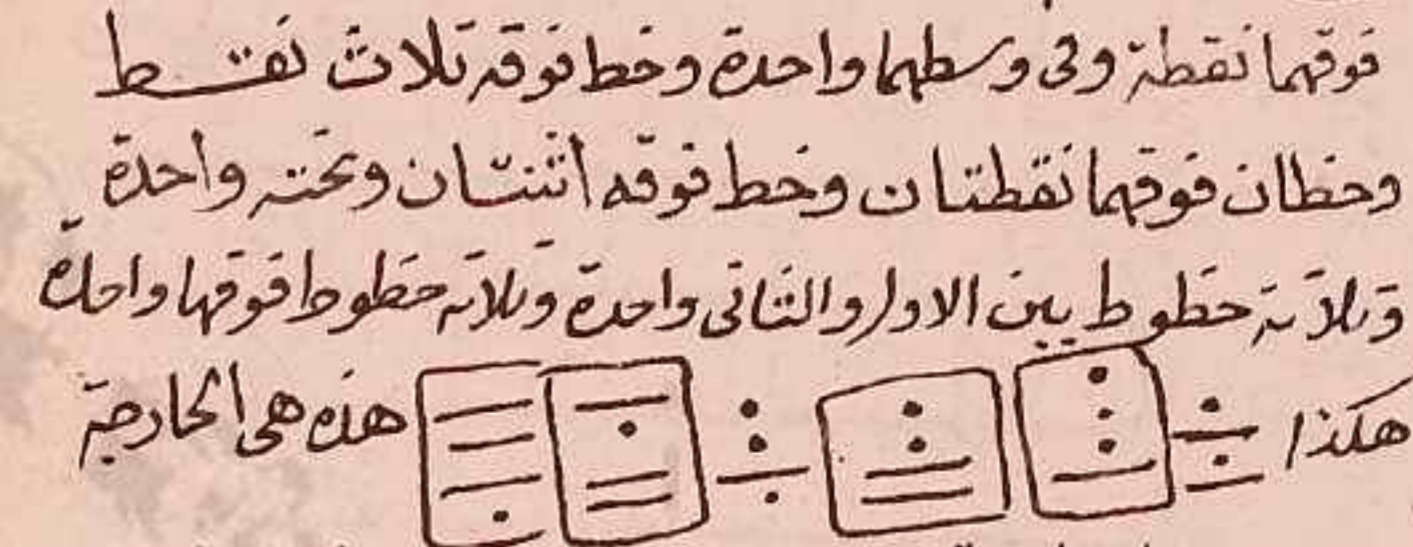 فوقهما نقطة وفى وسطهما واحدة وخط فوقه ثلاث نقط
وخطان فوقهما نقطتان وخط فوقه اثنتان وتحته واحدة
وثلاثة خطوط بين الاول والثانى واحدة وثلاثه خطوط فوقها واحدة
هكذا هذه هى الخارجة